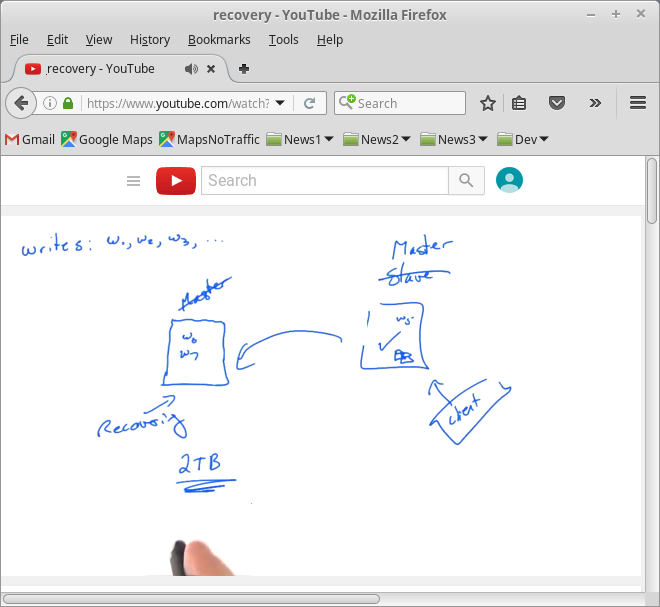 recovery - YouTube - Mozilla Firefox
File Edit View History Bookmarks Tools Help
recovery - YouTube
https://www.youtube.com/watch? Search
Gmail Google Maps MapsNoTraffic News1 News2 News3 Dev
Search
writes: w1, w2, w3, ...
Master
Slave
Master
w5
w6
w7
client
Recovering
2TB